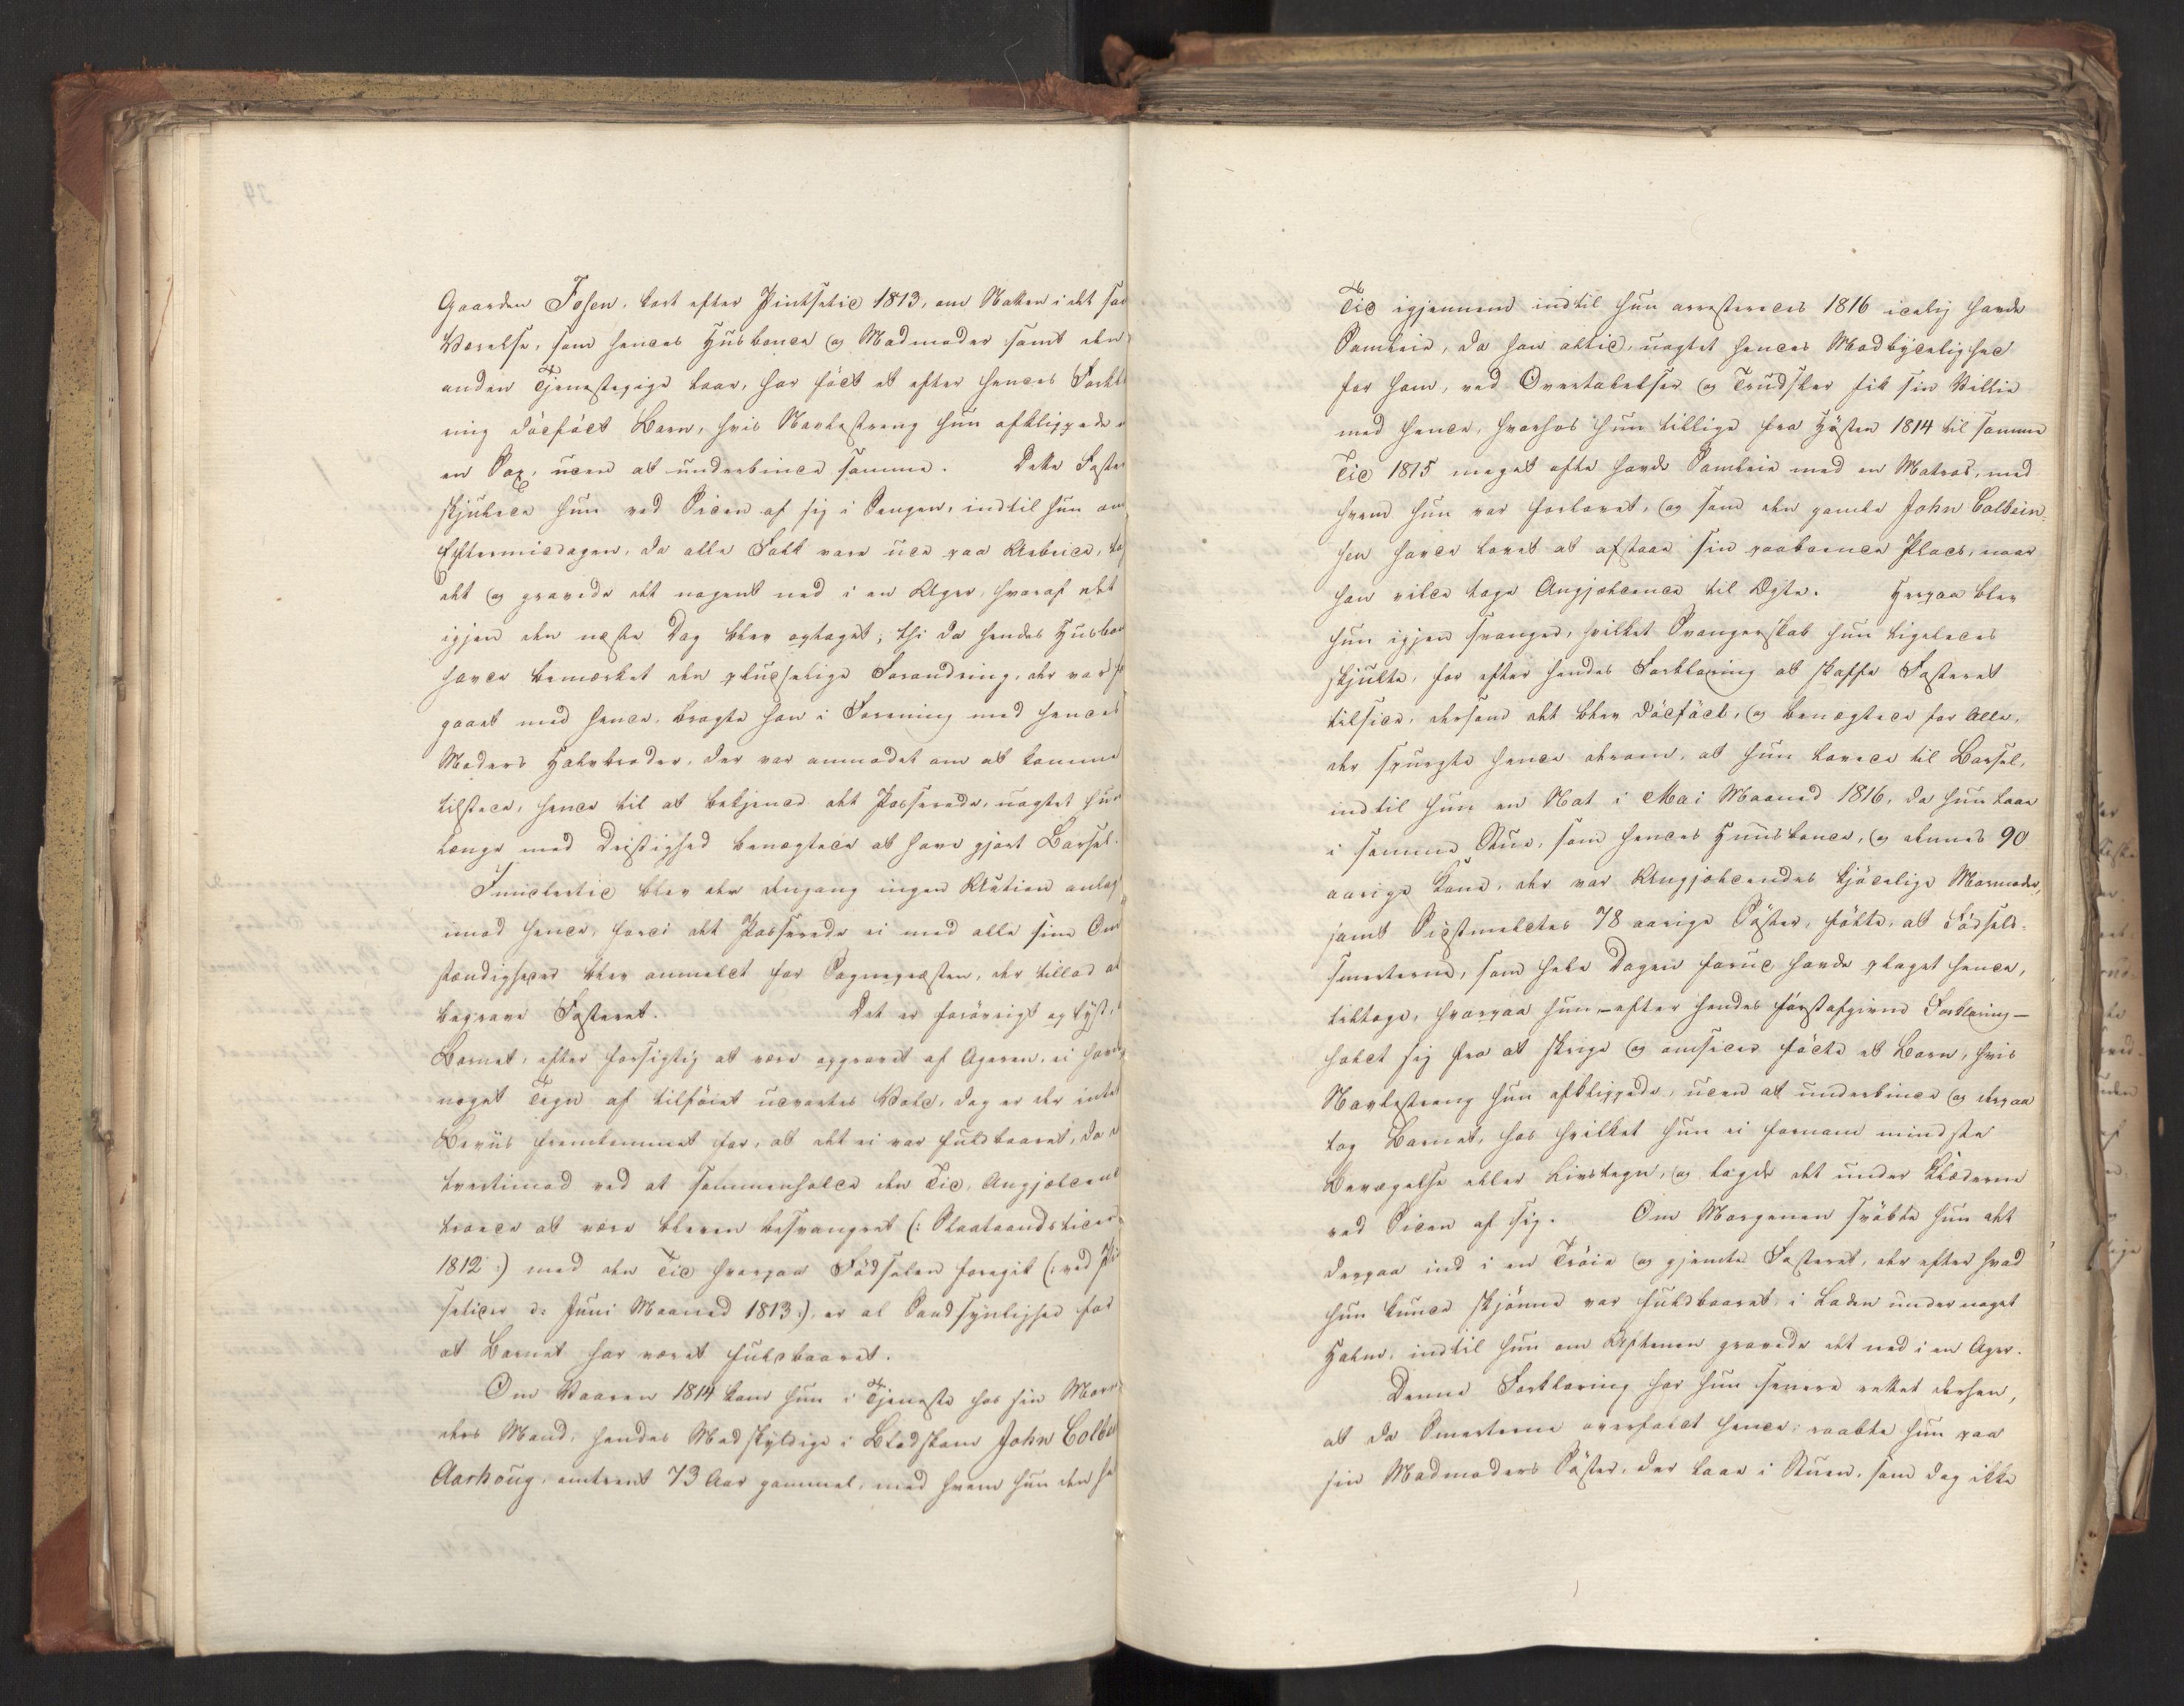 Gaarden Fosen, kort efter Pintsetid 1813, om Natten i det sam
Værelse, som hendes Husbonde og Madmoder samt den
anden Tjenestepige laae, har født et efter hendes Forkla
ring dødfødt Barn, hvis Navlestreng hun afklippede
en Sax, uden at underbinde samme. Dette Foster
skjulede hun ved Siden af sig i Sengen, indtil hun om
Eftermiddagen, da alle Folk vare ude paa Arbeide, tog
det og gravede det nøgent ned i en Ager, hvoraf det
igjen den næste Dag blev optaget; thi da hendes Husbon
havde bemærket den pludselige Forandring, der var fo
gaaet med hende, bragte han i Forening med hendes
Moders Halvbroder, der var anmodet om at komme
tilstede, hende til at bekjende det Passerede, uagtet hun
længe med Dristighed benægtede at have gjort Barsel.
Imidlertid blev der dengang ingen Action anlagt
imod hende, fordi det Passerede ei med alle sine Om
stændigheder blev anmeldt for Sognepræsten, der tillod at
begrave Fosteret. Det er forövrigt oplyst,
Barnet, efter forsigtig at være opgravet af Ageren, ei havde
noget Tegn af tilføiet udvortes Vold, dog er der intet
Beviis fremkommet for, at det ei var fuldbaaret, da
tvertimod ved at sammenholde den Tid, Angjældende
troede at være bleven besvangret (: Slaataandstider
1812 :) med den Tid hvorpaa Födselen foregik (: ved Pi
setider ɔ: Juni Maaned 1813 :), er al Sandsynlighed for
at Barnet har været fuldbaaret.
Om Vaaren 1814 kom hun i Tjeneste hos sin Mormo
ders Mand, hendes Medskyldige i Blodskam John Colbe
Aarhoug, omtrent 73 Aar gammel, med hvem hun den he
Tid igjennem indtil hun arresteredes 1816 idelig havde
Samleie, da han altid, uagtet hendes Modbydelighed
for ham, ved Overtalelser og Trudsler fik sin Villie
med hende, hvorhos hun tillige fra Hösten 1814 til samme
Tid 1815 meget ofte havde Samleie med en Matros, med
hvem hun var forlovet, og som den gamle John Colbein-
sen havde lovet at afstaae sin paaboende Plads, naar
han vilde tage Angjældende til Ægte. Herpaa blev
hun igjen svanger, hvilket Svangerskab hun ligeledes
skjulte, for efter hendes Forklaring at skaffe Fosteret
tilside, dersom det blev dödfödt, og benægtede for Alle,
der spurgte hende derom, at hun lavede til Barsel,
indtil hun en Nat i Mai Maaned 1816, da hun laae
i samme Stue, som hendes Huusbonde, og dennes 90
aarige Kone, der var Angjældendes kjödelige Mormoder,
samt Sidstmeldtes 78 aarige Söster, fölte, at Födsels-
smerterne, som hele Dagen forud havde plaget hende,
tiltoge, hvorpaa hun, – efter hendes förstafgivne Forklaring –
holdt sig fra at skrige og omsider födte et Barn, hvis
Navlestreng hun afklippede, uden at underbinde og derpaa
tog Barnet, hos hvilket hun ei fornam mindste
Bevægelse eller Livstegn, og lagde det under Klæderne
ved Siden af sig. Om Morgenen svöbte hun det
derpaa ind i en Tröie og gjemte Fosteret, der efter hvad
hun kunde skjönne var fuldbaaret, i Laden under noget
Halm, indtil hun om Aftenen gravede det ned i en Ager.
Denne Forklaring har hun senere rettet derhen,
at da Smerterne overfaldt hende, raabte hun paa
sin Madmoders Söster, der laae i Stuen, som dog ikke